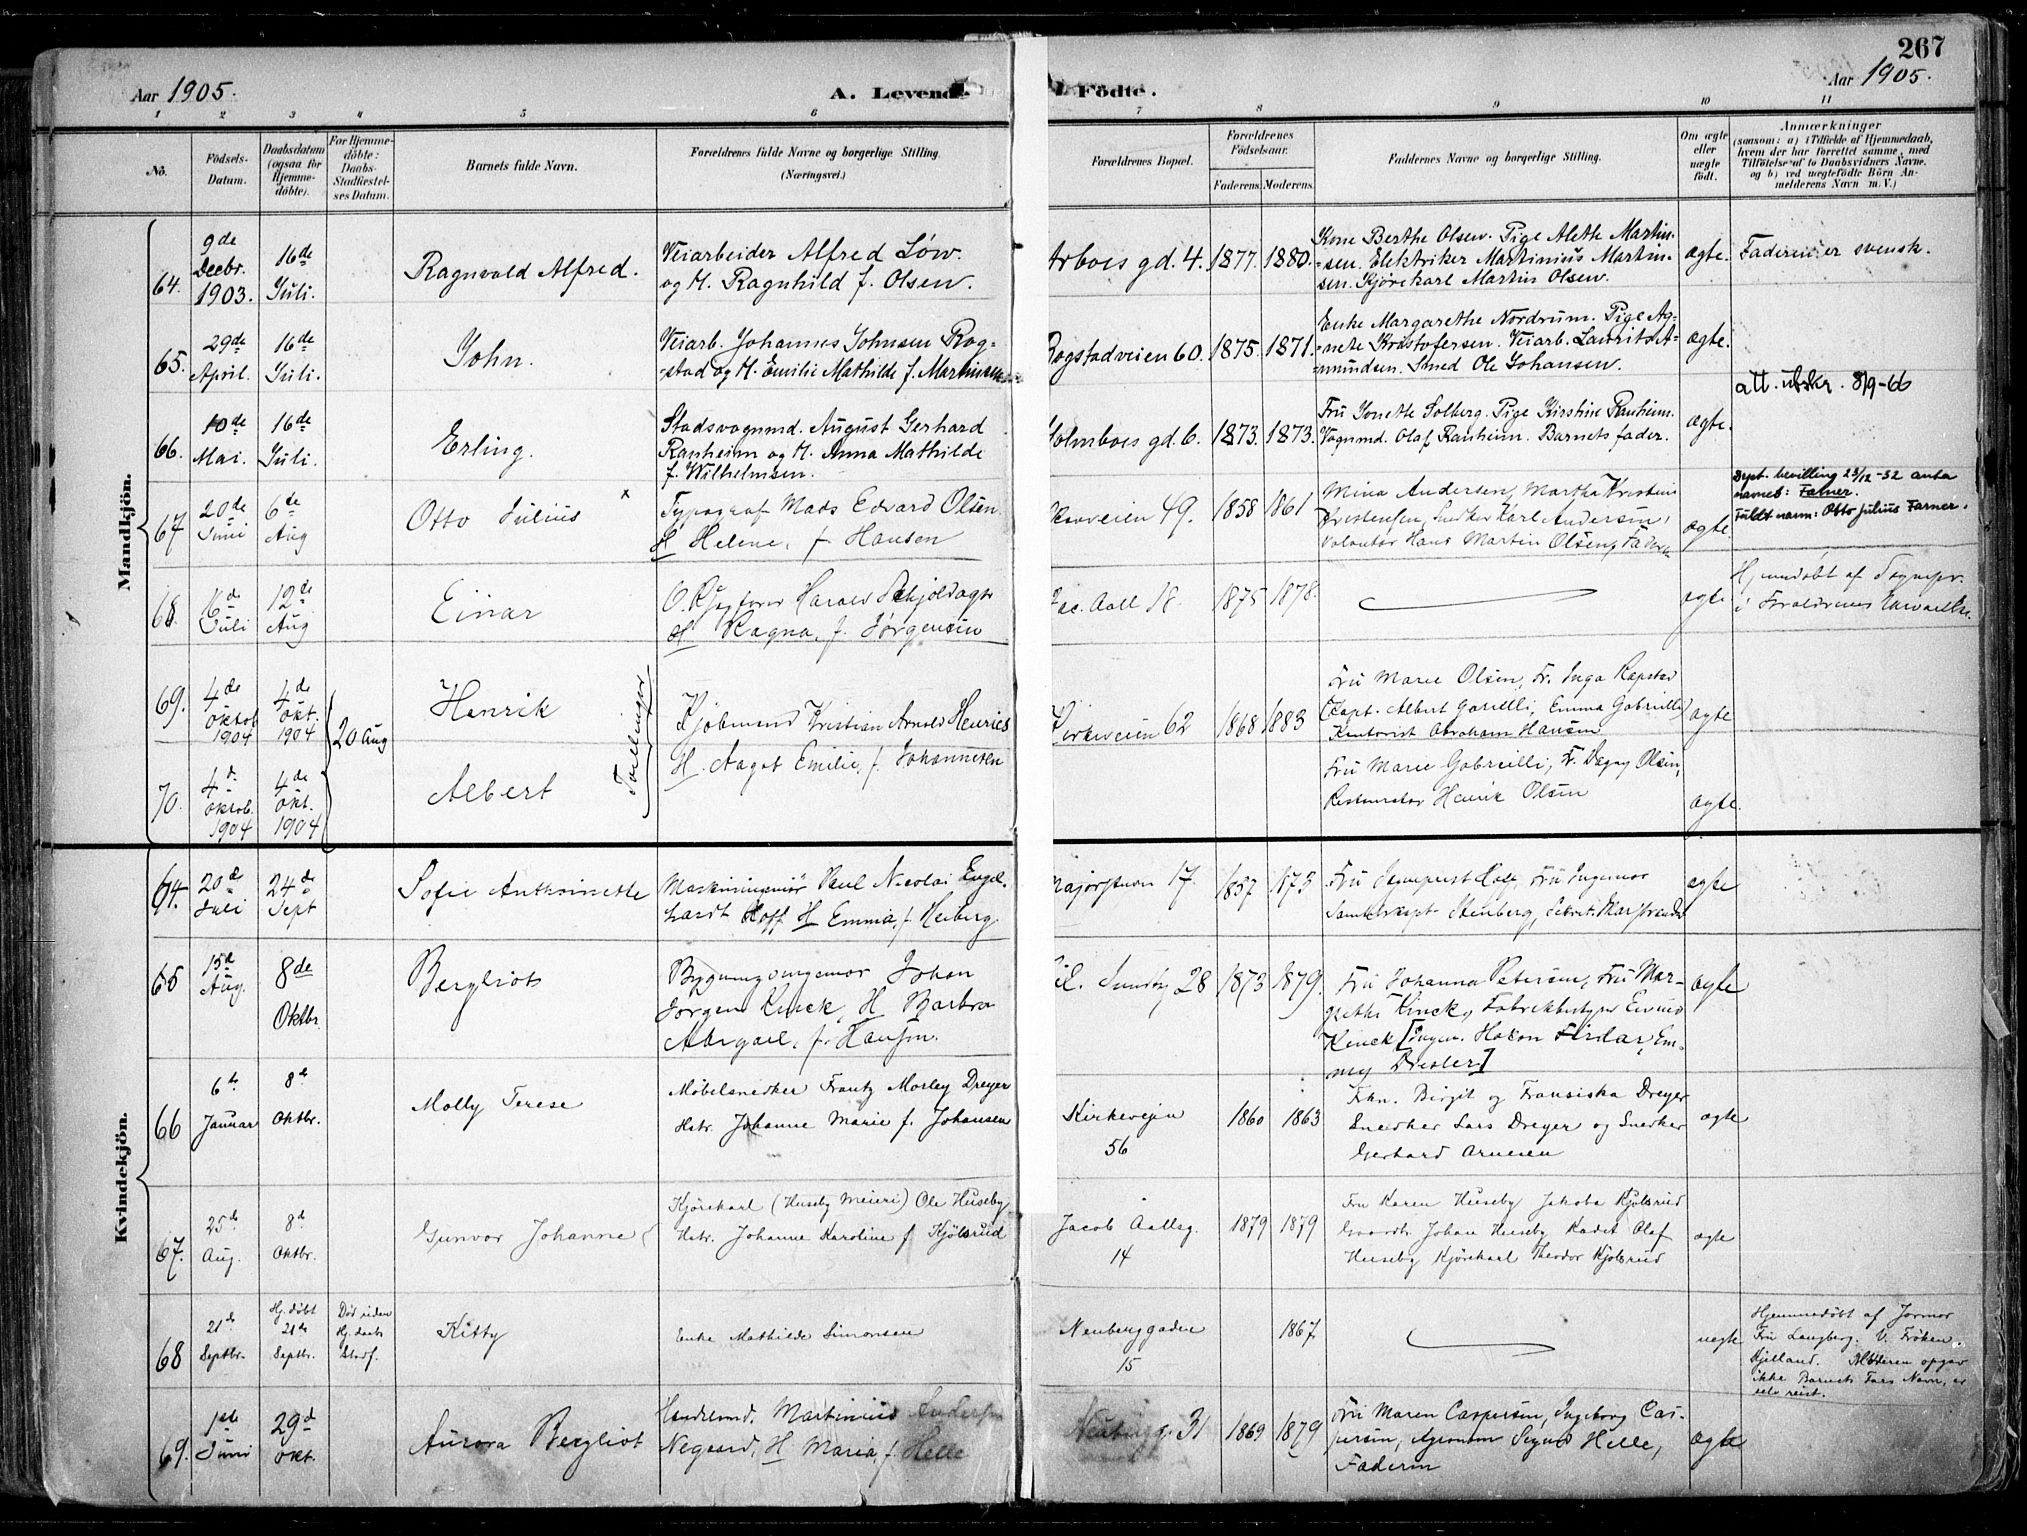 267
Aar 1905.
A. Levende
Födte.
Aar 1905.
1 2 3 4 5 6 7 8 9 10 11
No.
Födsels-
Datum.
Daabsdatum
(ogsaa för
Hjemme-
döbte).
For Hjemme-
döbte:
Daabs-
Stadfæstel-
ses Datum.
Barnets fulde Navn.
Forældrenes fulde Navne og borgerlige Stilling.
(Næringsvei.)
Forældrenes Bopæl.
Forældrenes
Födselsaar.
Faderens. Moderens.
Faddernes Navne og borgerlige Stilling.
Om ægte
eller
uægte
födt.
Anmærkninger
(saasom: a) i Tilfælde af Hjemmedaab,
hvem der har forrettet samme, med
Tilföielse af to Daabsvidners Navne.
og b) ved uægtefödte Börn An-
melderens Navn m. V.)
Mandkjön.
64. 9de Decbr. 1903. 16de Juli. Ragnvald Alfred.
Veiarbeider Alfred Löw
og H. Ragnhild f. Olsen.
Arboes gd. 4. 1877. 1880.
Kone Berthe Olsen. Pige Alette Martin-
sen. Elektriker Martinius Martin-
sen. Kjörekarl Martin Olsen.
ægte. Faderen er svensk.
65. 29de April. 16de Juli. John.
Veiarb. Johannes Johnsen Rog-
stad og H. Emilie Mathilde f. Martinsen
Rogstadveien 60. 1875. 1871.
Enke Margarethe Nordrum. Pige Ag-
nete Kristofersen. Veiarb. Laurits A-
mundsen. Smed Ole Johansen.
ægte.
att. utskr. 8/9-66
66. 10de Mai. 16de Juli. Erling.
Stadsvognmd. August Gerhard
Ranheim og H. Anna Mathilde
f. Wilhelmsen.
Holmboes gd. 6. 1873. 1873.
Fru Jonette Solberg. Pige Kirstine Ranheim.
Vognmd. Olaf Ranheim. Barnets fader.
ægte.
67 20de Juni 6de Aug Otto Julius x
Typograf Mads Edvard Olsen
H Helene, f. Hansen
49. 1858 1861
Mina Andersen, Martha Kristine
Kristensen, Snedker Karl Andersen,
Volontör Hans Martin Olsen, Faderen
ægte
Dept. bevilling 23/12-52 anta
navnet: Farner.
Fuldt navn: Otto Julius Farner.
68. 6d Juli 12de Aug Einar
O.R.sagförer Harald Skjoldager
H Ragna, f. Jørgensen
Jac. Aall 18 1875 1878.
ægte
Hjemdöbt af Sognepr.
i Forældrenes
69. 4de Oktob 1904 4de Okt. 1904 20 Aug Henrik
Tvillinger
Kjöbmand Kristian Arnold Henries
H. Aagot Emilie, f. Johannesen
Kirkeveien 62 1868 1883
Fru Marie Olsen, Fr. Inga Rapstad
Kapt. Albert Gabrielli, Emma Gabrielli
Kontorist Abraham Hansen
ægte
70. 4d. Oktob. 1904 4de Okt. 1904 Albert
Fru Marie Gabrielli, Fr. Dagny Olsen,
Restauratør Henrik Olsen
ægte.
Kvindekjön.
64. 20de Juli 24de Sept Sofie Anthoinette
Maskiningeniör Paul Nicolai Engel-
hardt Hoff H Emma, f. Heiberg
Majorstuen 17. 1857 1873
Fru Sogneprest Hoff, Fru Ingeniør
Stenberg, Sekret. Marstrander
ægte
65 15d Aug. 8de Oktbr Bergliot
Bygningsingeniør Johan
Jørgen Kinck, H Barbra
Abigael, f. Hansen.
Eil. Sundtsg 28 1873 1879.
Fru Johanna Petersen, Fru Mar-
grethe Kinck, Fabrikbestyrer Eivind
Kinck [Ingen. Hakon Firdar, Em-
my Drexler]
ægte
66 6te Januar 8d Oktbr. Molly Terese
Möbelsnedker Frantz Morley Dreyer
Hstr. Johanne Marie f. Johansen
Kirkeveien
56
1860 1863
Frkn. Birgit og Fransiska Dreyer
Snedker Lars Dreyer og Snedker
Gerhard Arnesen
ægte
67. 25de Aug. 8d Oktbr. Gunvor Johanne
Kjörekarl (Huseby Meieri) Ole Huseby
Hstr. Johanne Karoline f Kjölsrud
Jacob Aallsg.
14
1879 1879
Fru Karen Huseby Jakoba Kjölsrud
Gaardbr. Johan Huseby Kadet Olaf
Huseby Kjörekarl Theodor Kjölsrud
ægte
68 21de Septbr. Hj. döbt 21de Septbr. Död uden Hj. daabs Stadf. Kitty
Enke Mathilde Simonsen
Neuberggaden
15
1867
uægte
Hjemmedöbt af Jormor
Fru Langberg. V. Fröken
Kjelland. Moderen opgav
ikke Barnets Fars Navn, er
selv reist.
69. 1ste Juni 29d Okt. Aurora Bergliot
Handelsmd. Martinius Andersen
Negaard, H Maria, f. Helle
Neubergg. 31 1869 1879
Fru Maren Caspersen, Ingeborg Cas-
persen, Agronom Sigurd Helle,
Faderen
ægte